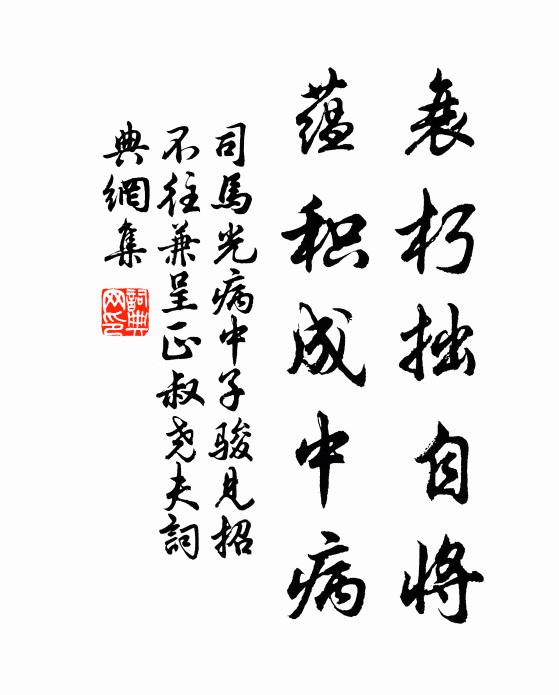 衰朽拙自将
蕴积成中病
司馬光病中子骏見招
不往兼呈正叔尧夫詞
典網集
詞典網印